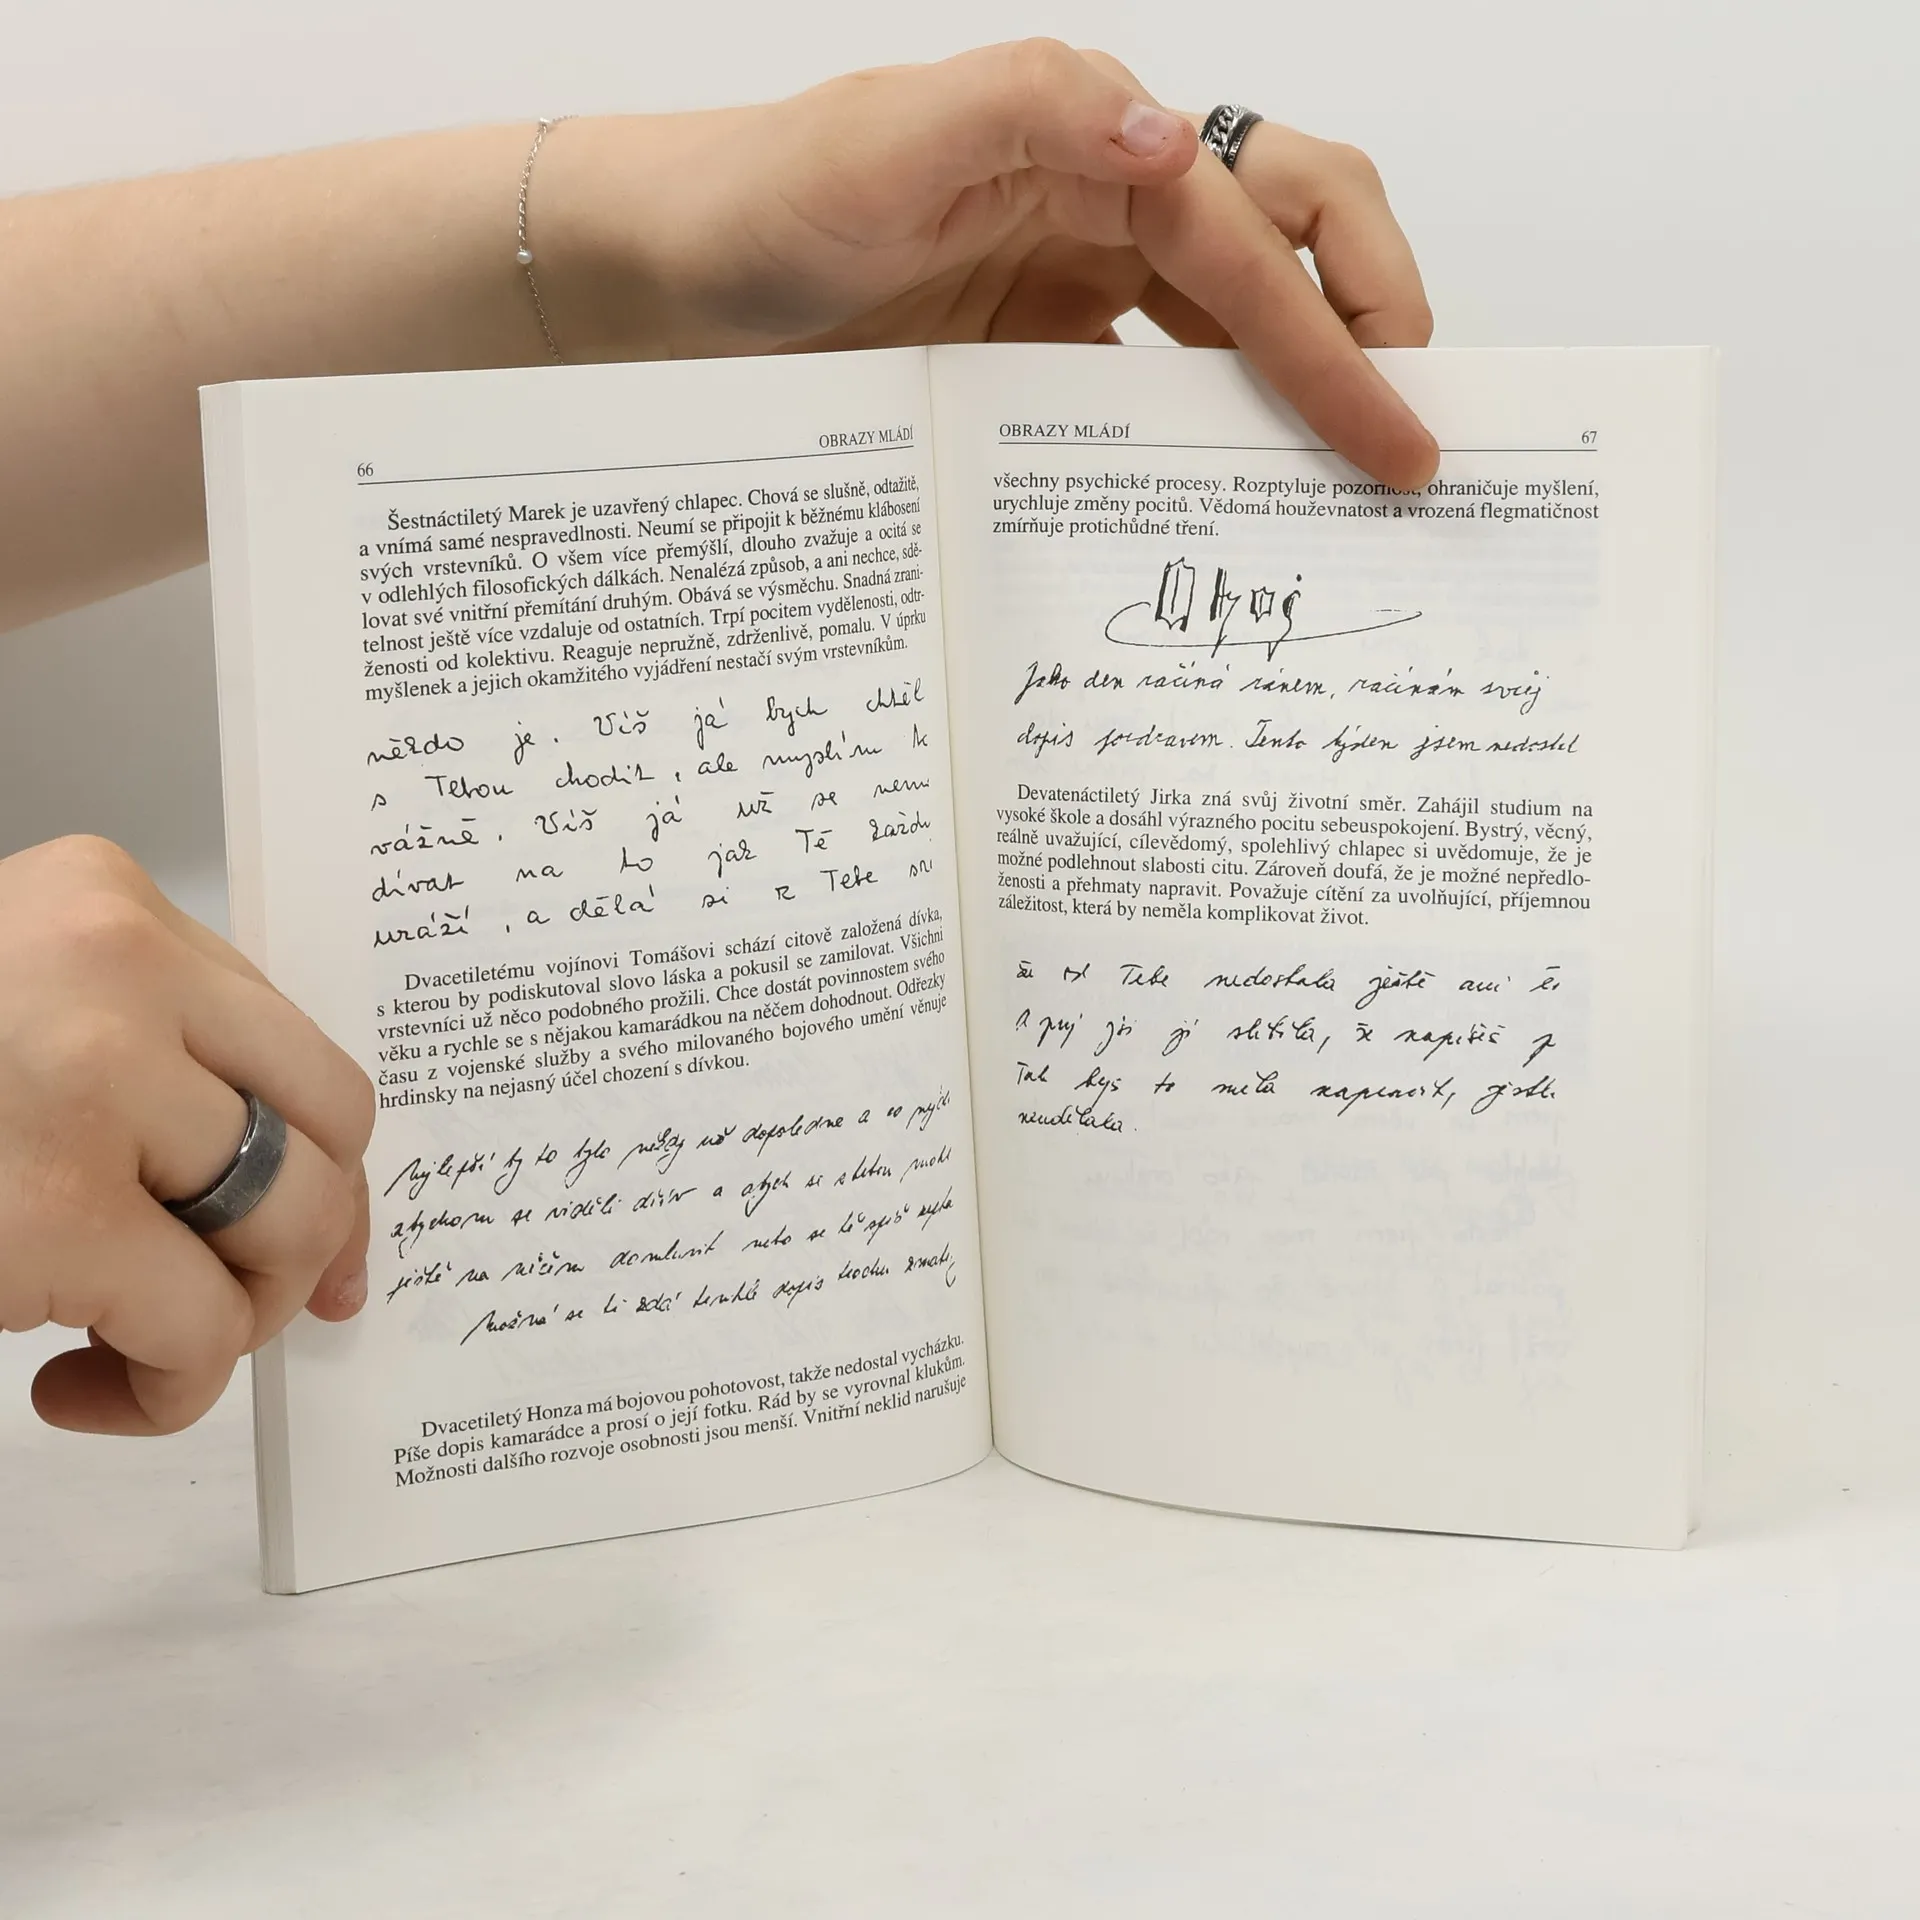 66
OBRAZY MLÁDÍ
Šestnáctiletý Marek je uzavřený chlapec. Chová se slušně, odtažitě,
a vnímá samé nespravedlnosti. Neumí se připojit k běžnému klábosení
svých vrstevníků. O všem více přemýšlí, dlouho zvažuje a ocitá se
v odlehlých filosofických dálkách. Nenalézá způsob, a ani nechce, sdě-
lovat své vnitřní přemítání druhým. Obává se výsměchu. Snadná zrani-
telnost ještě více vzdaluje od ostatních. Trpí pocitem vydělenosti, odtr-
ženosti od kolektivu. Reaguje nepružně, zdrženlivě, pomalu. V úprku
myšlenek a jejich okamžitého vyjádření nestačí svým vrstevníkům.
je. Víš já bych chtěl
s Tebou chodit, ale myslím
vážně. Víš já už se
dívat na to jak Tě
uráží, a dělá si z Tebe
Dvacetiletému vojínovi Tomášovi schází citově založená dívka,
s kterou by podiskutoval slovo láska a pokusil se zamilovat. Všichni
vrstevníci už něco podobného prožili. Chce dostát povinnostem svého
věku a rychle se s nějakou kamarádkou na něčem dohodnout. Odřezky
času z vojenské služby a svého milovaného bojového umění věnuje
hrdinsky na nejasný účel chození s dívkou.
Nejlepší by to bylo někdy už dopoledne a co
abychom se viděli dřív a abych se s tebou mohl
ještě na něčem domluvit nebo se tě spíš
Možná se ti zdá tenhle dopis trochu
Dvacetiletý Honza má bojovou pohotovost, takže nedostal vycházku.
Píše dopis kamarádce a prosí o její fotku. Rád by se vyrovnal klukům.
Možnosti dalšího rozvoje osobnosti jsou menší. Vnitřní neklid narušuje
OBRAZY MLÁDÍ
67
všechny psychické procesy. Rozptyluje pozornost, ohraničuje myšlení,
urychluje změny pocitů. Vědomá houževnatost a vrozená flegmatičnost
zmírňuje protichůdné tření.
Ahoj
Jako den začíná ránem, začínám svůj
dopis pozdravem. Tento týden jsem nedostal
Devatenáctiletý Jirka zná svůj životní směr. Zahájil studium na
vysoké škole a dosáhl výrazného pocitu sebeuspokojení. Bystrý, věcný,
reálně uvažující, cílevědomý, spolehlivý chlapec si uvědomuje, že je
možné podlehnout slabosti citu. Zároveň doufá, že je možné nepředlo-
ženosti a přehmaty napravit. Považuje cítění za uvolňující, příjemnou
záležitost, která by neměla komplikovat život.
že od Tebe nedostala ještě ani
A prý jsi jí slíbila, že napíšeš
Tak bys to měla napravit,
neudělala.